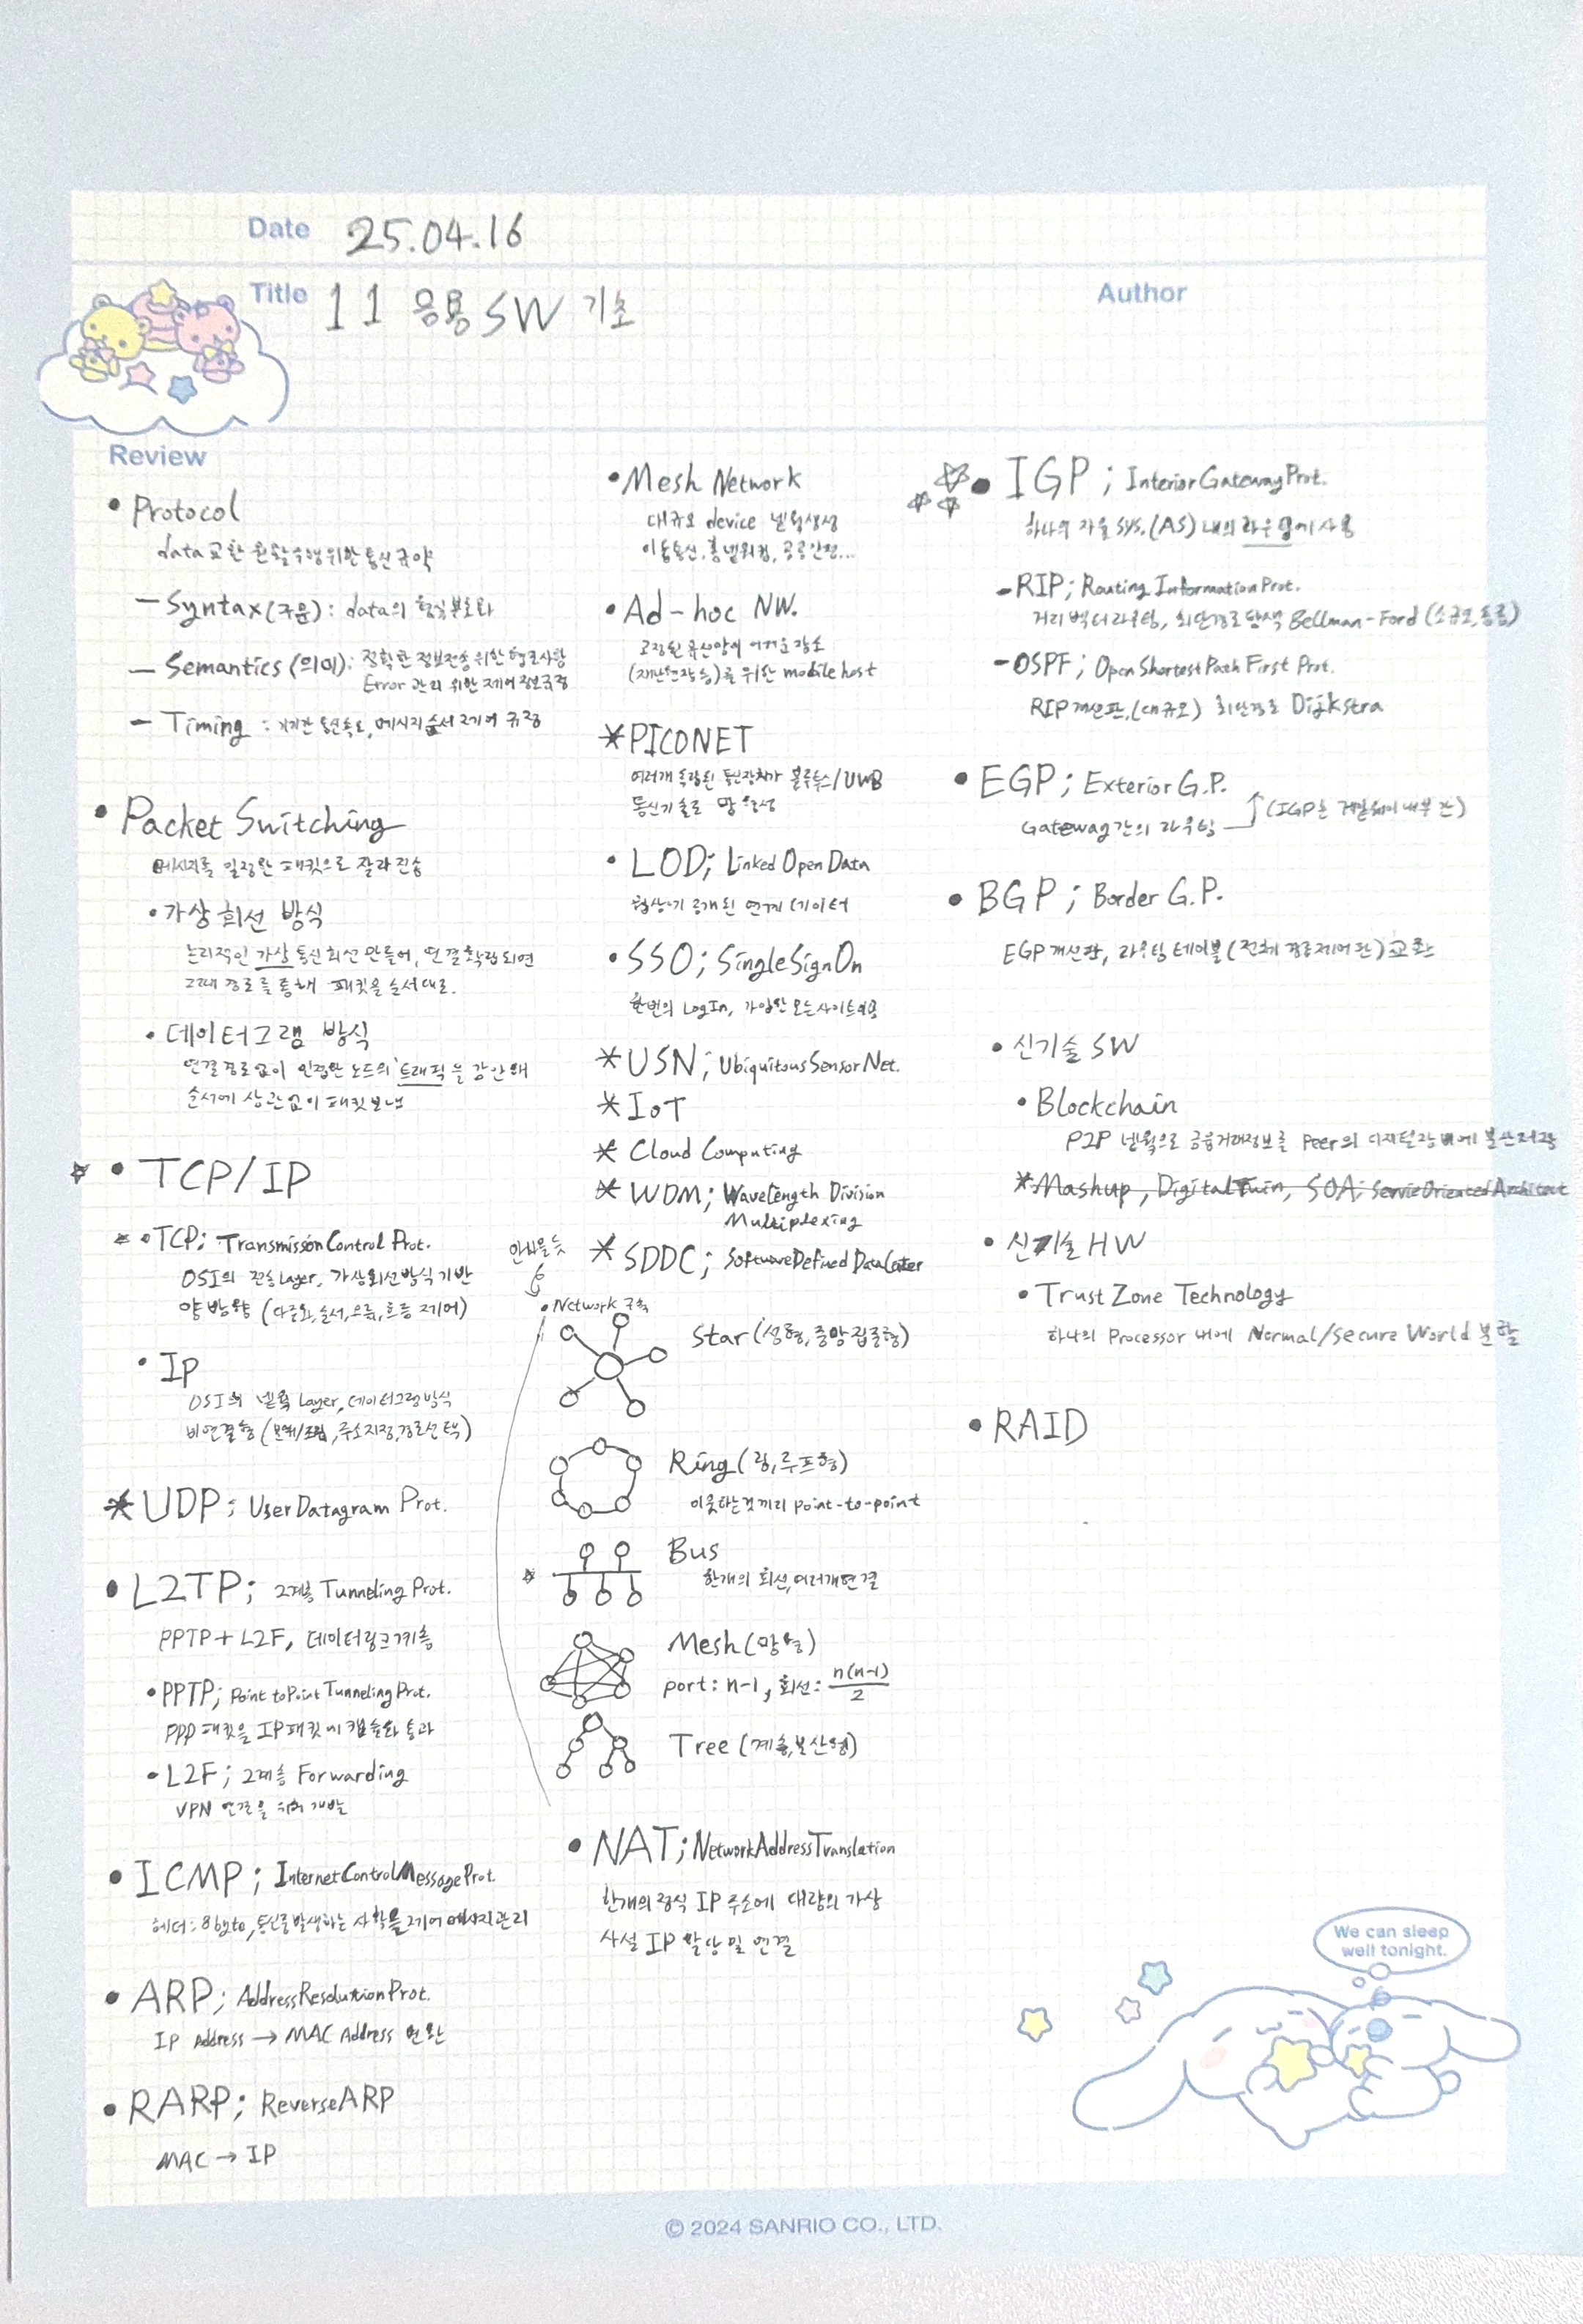 Date 25.04.16
Title 11 응용 SW 기초
Author
Review
• Protocol
data 교환 원활수행위한 통신규약
— Syntax (구문) : data의 형식, 부호화
— Semantics (의미) : 정확한 정보전송 위한 협조사항
Error 관리 위한 제어정보규정
— Timing : 기기간 통신속도, 메시지 순서 제어 규정
• Packet Switching
메시지를 일정한 패킷으로 잘라 전송
• 가상 회선 방식
논리적인 가상 통신회선 만들어, 연결확립되면
그대 경로를 통해 패킷을 순서대로.
• 데이터그램 방식
연결경로없이 인접한 노드의 트래픽을 감안해
순서에 상관없이 패킷보냄
• TCP/IP
• TCP; Transmisson Control Prot.
OSI의 전송 Layer, 가상회선방식 기반
양방향 (다중화, 순서, 오류, 흐름 제어)
• Ip
OSI의 넷웤 Layer, 데이터그램방식
비연결형 (분해/조립, 주소지정, 경로선택)
* UDP; User Datagram Prot.
• L2TP; 2계층 Tunneling Prot.
PPTP + L2F, 데이터링크계층
• PPTP; Point to Point Tunneling Prot.
PPP 패킷을 IP 패킷에 캡슐화 통과
• L2F; 2계층 Forwarding
VPN 연결을 위해 개발
• ICMP; Internet Control Message Prot.
헤더: 8byte, 통신중발생하는 사항을 제어 메시지관리
• ARP; Address Resolution Prot.
IP Address → MAC Address 변환
• RARP; Reverse ARP
MAC → IP
• Mesh Network
대규모 device 넷웤생성
이동통신, 홈넷워킹, 공공안전...
• Ad-hoc NW.
고정된 유선망이 어려운 장소
(재난현장 등)를 위한 mobile host
* PICONET
여러개 독립된 통신장치가 블루투스/UWB
통신기술로 망 형성
• LOD; Linked Open Data
웹상에 공개된 연계 데이터
• SSO; Single Sign On
한번의 LogIn, 가입한 모든사이트
* USN; Ubiquitous Sensor Net.
* IoT
* Cloud Computing
* WDM; Wavelength Division
Multiplexing
* SDDC; Software Defined Data Center
안나올듯
• Network 구축
Star (성형, 중앙집중형)
Ring (링, 루프형)
이웃하는것끼리 point-to-point
Bus
한개의 회선, 여러개연결
Mesh (망형)
port: n-1, 회선: n(n-1)/2
Tree (계층, 분산형)
• NAT; Network Address Translation
한개의 정식 IP 주소에 대량의 가상
사설 IP 할당 및 연결
• IGP; Interior Gateway Prot.
하나의 자율 sys. (AS) 내의 라우팅에 사용
- RIP; Routing Information Prot.
거리 벡터 라우팅, 최단경로 탐색 Bellman-Ford (소규모, 동종)
- OSPF; Open Shortest Path First Prot.
RIP 개선판, (대규모) 최단경로 Dijkstra
• EGP; Exterior G.P.
Gateway간의 라우팅 (IGP는 게이트웨이 내부 간)
• BGP; Border G.P.
EGP 개선판, 라우팅 테이블 (전체 경로제어판) 교환
• 신기술 SW
• Blockchain
P2P 넷웤으로 금융거래정보를 Peer의 디지털장비에 분산저장
* Mashup, Digital Twin, SOA; Servie Oriented Architect
• 신기술 HW
• Trust Zone Technology
하나의 Processor 내에 Normal/Secure World 분할
• RAID
We can sleep
well tonight.
© 2024 SANRIO CO., LTD.